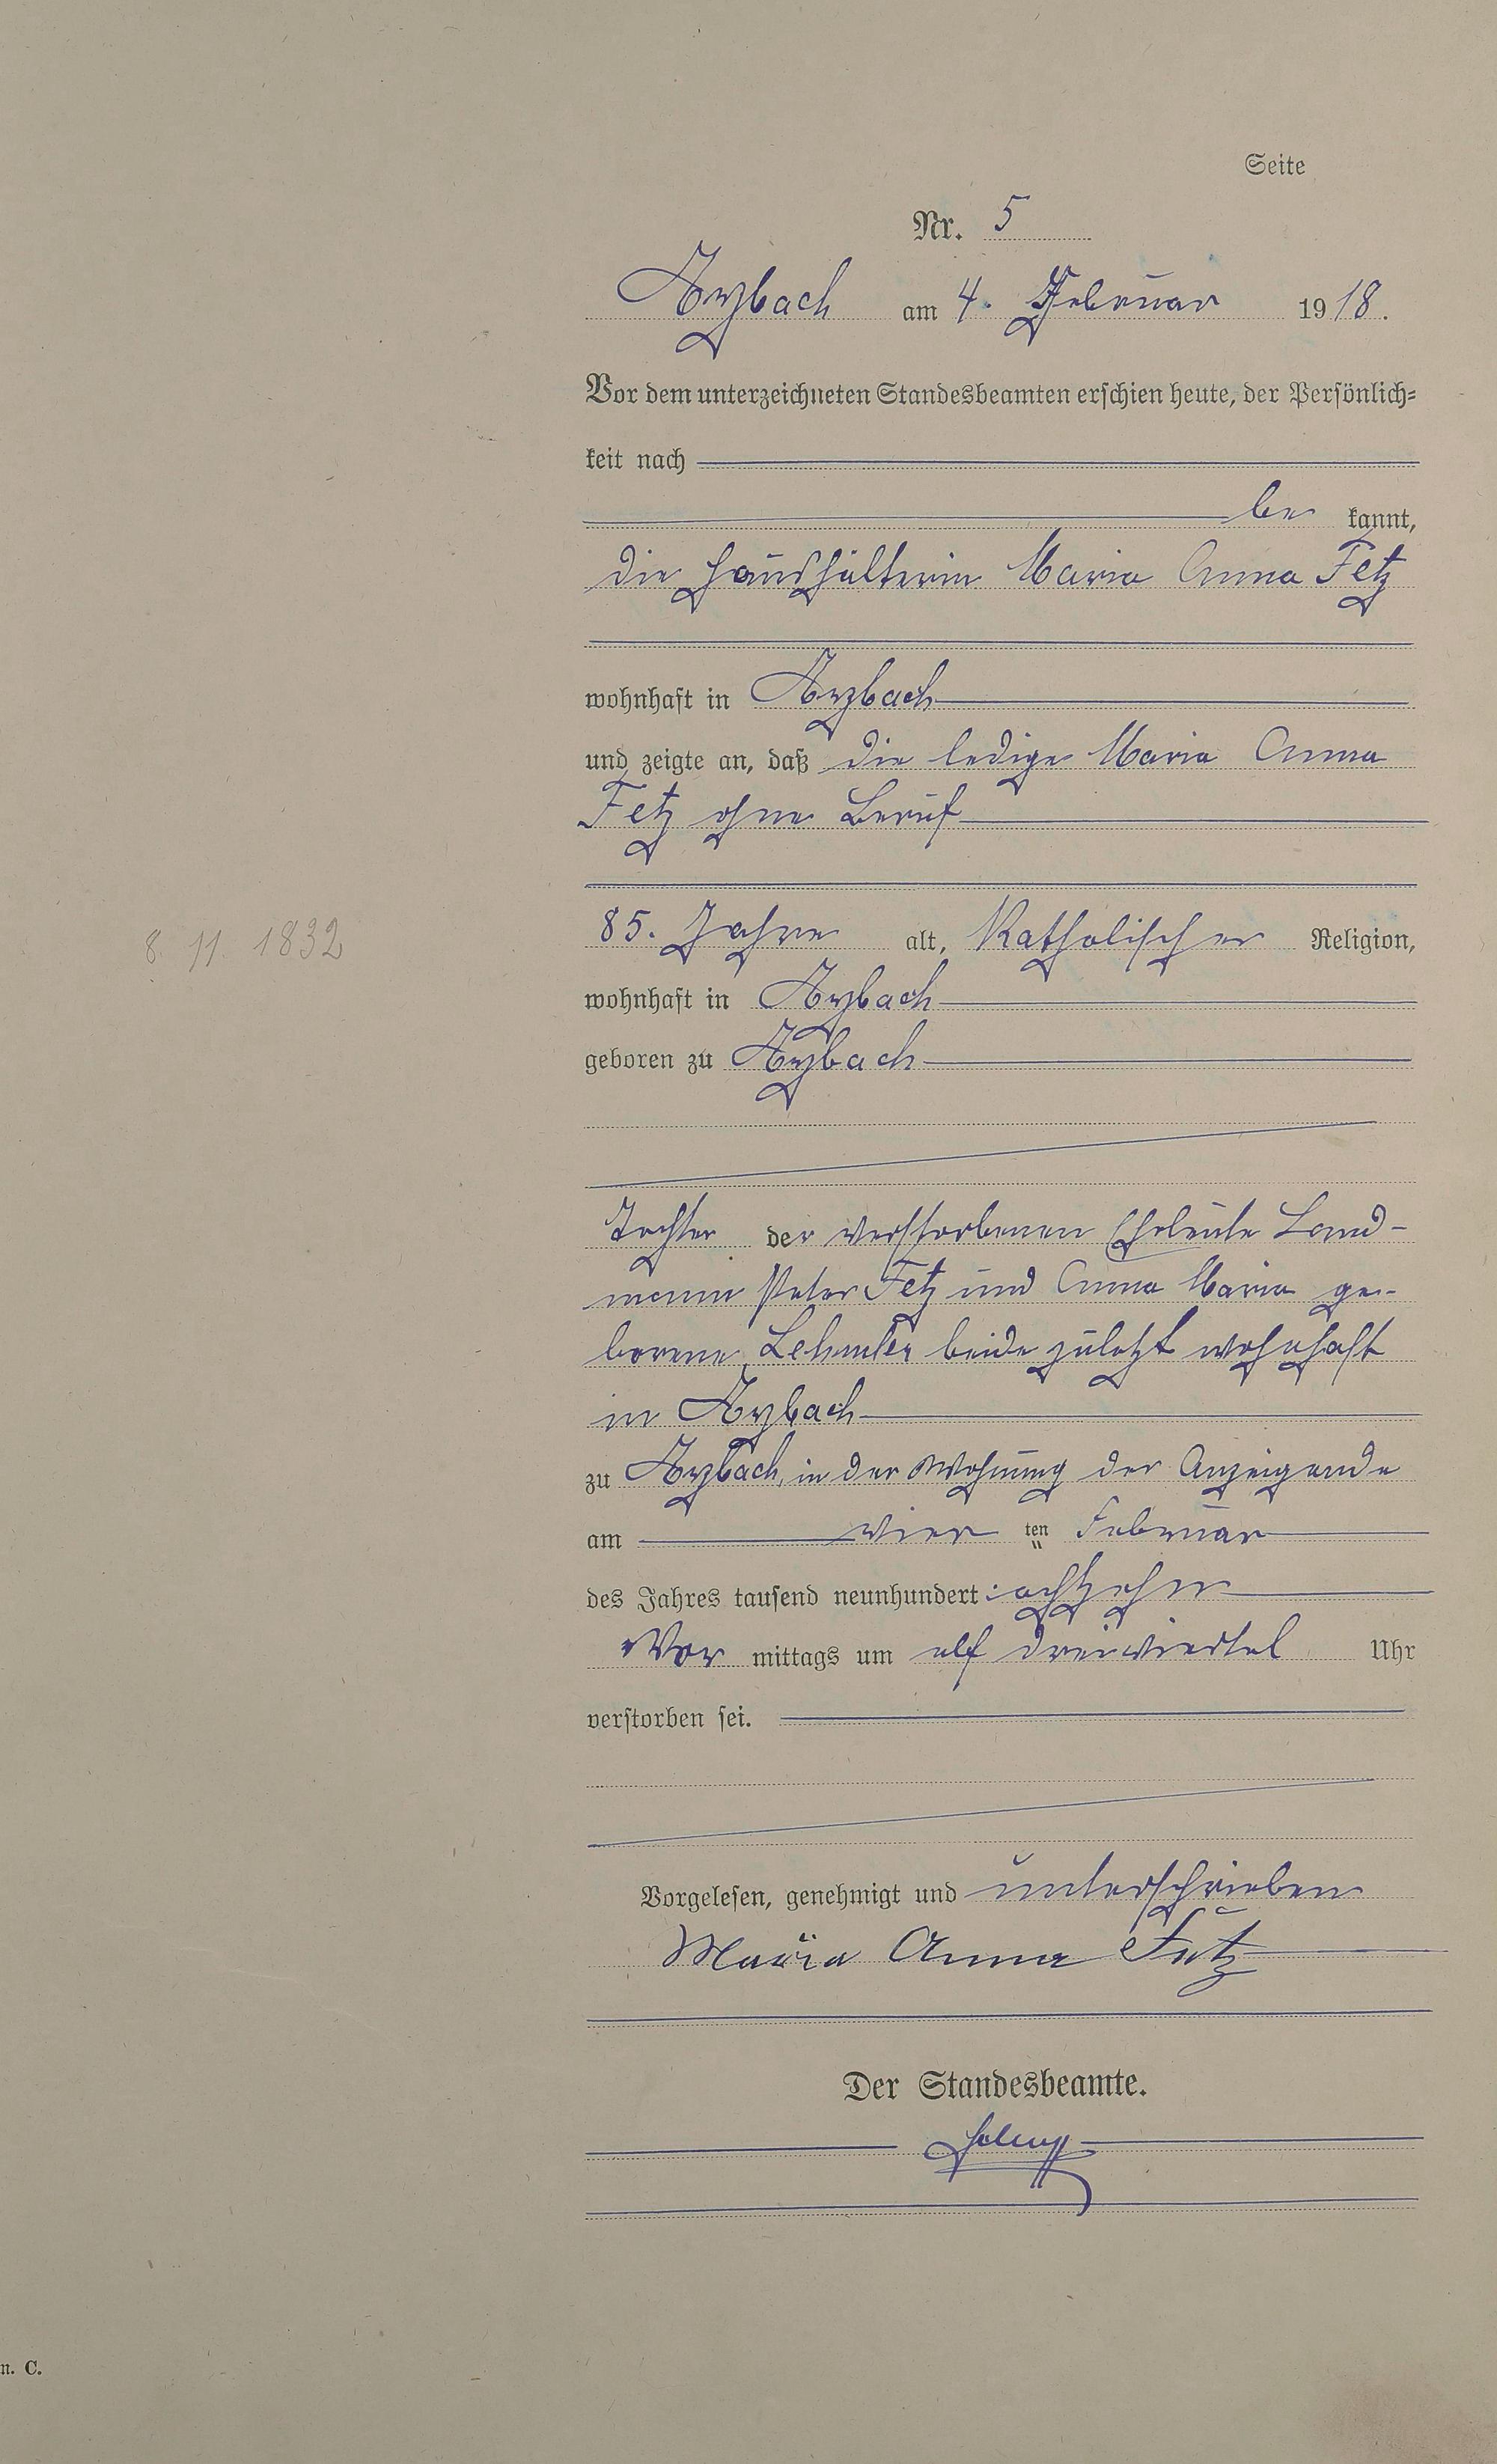 Seite
Nr. 5
Arzbach am 4. Februar 1918.
Vor dem unterzeichneten Standesbeamten erschien heute, der Persönlich-
keit nach
be kannt,
die Haushälterin Maria Anna Fetz
wohnhaft in Arzbach
und zeigte an, daß die ledige Maria Anna
Fetz ohne Beruf
8. 11. 1832
85. Jahre alt, Katholischer Religion,
wohnhaft in Arzbach
geboren zu Arzbach
Tochter der verstorbenen Eheleute Land-
mann Peter Fetz und Anna Maria ge-
borene Lehmler beide zuletzt wohnhaft
in Arzbach
zu Arzbach, in der Wohnung der Anzeigende
am vier ten Februar
des Jahres tausend neunhundert achtzehn
Vor mittags um elf dreiviertel Uhr
verstorben sei.
Vorgelesen, genehmigt und unterschrieben
Maria Anna Fetz
Der Standesbeamte.
n. C.